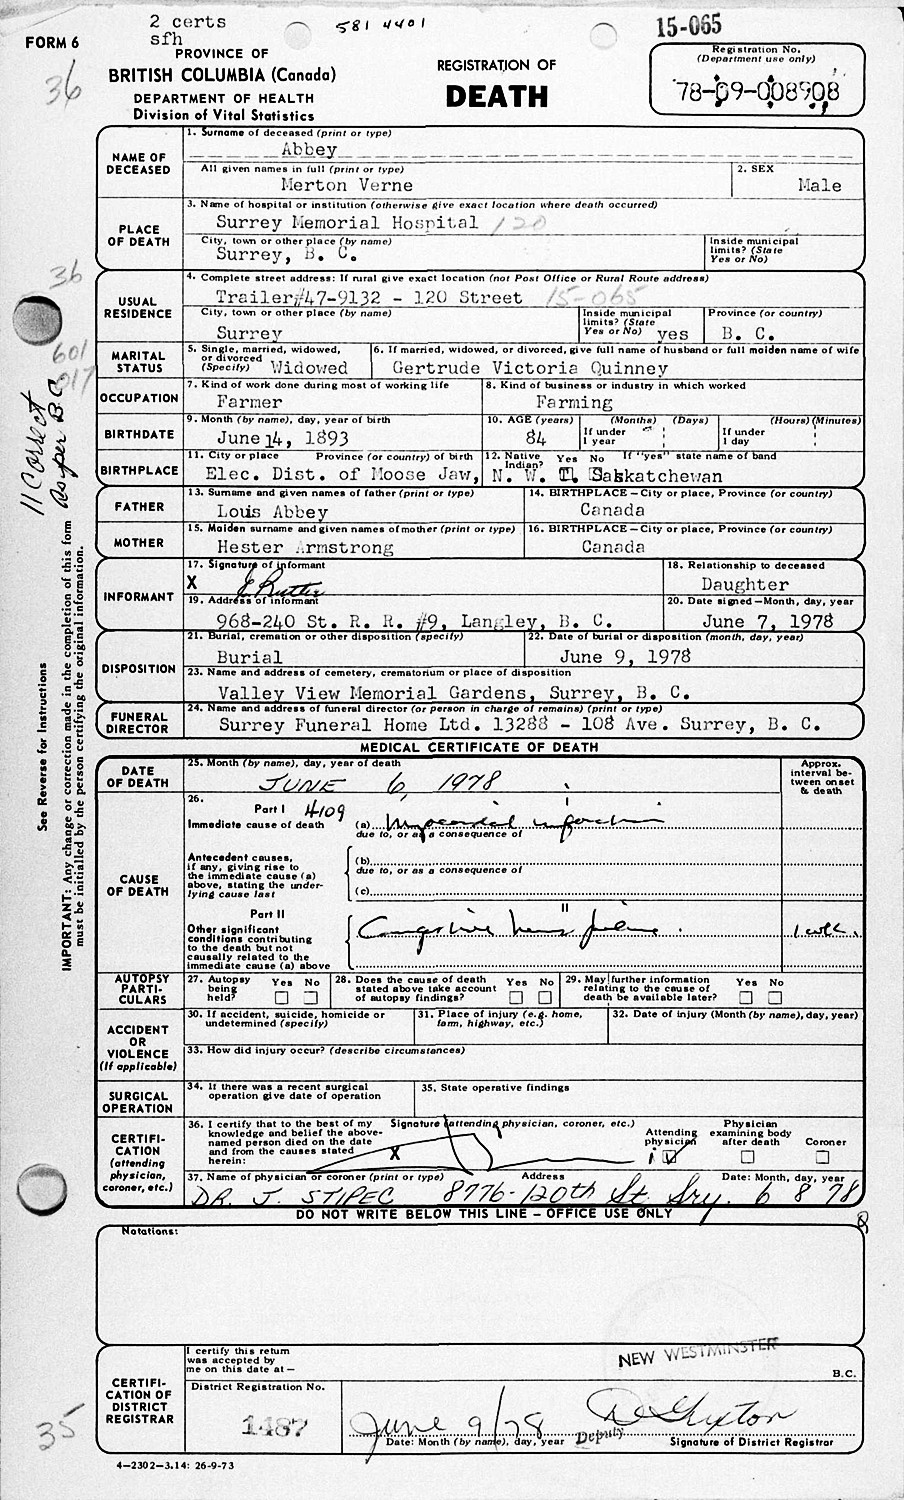 2 certs
sfh
581 4401
15-065
FORM 6
36
PROVINCE OF
BRITISH COLUMBIA (Canada)
DEPARTMENT OF HEALTH
Division of Vital Statistics
REGISTRATION OF
DEATH
Registration No.
(Department use only)
78-09-008908
NAME OF DECEASED
1. Surname of deceased (print or type)
Abbey
All given names in full (print or type)
Merton Verne
2. SEX
Male
PLACE OF DEATH
3. Name of hospital or institution (otherwise give exact location where death occurred)
Surrey Memorial Hospital 120
City, town or other place (by name)
Surrey, B. C.
Inside municipal limits? (State Yes or No)
36
USUAL RESIDENCE
4. Complete street address: If rural give exact location (not Post Office or Rural Route address)
Trailer#47-9132 - 120 Street 15-065
City, town or other place (by name)
Surrey
Inside municipal limits? (State Yes or No) yes
Province (or country)
B. C.
601
017
MARITAL STATUS
5. Single, married, widowed, or divorced (Specify) Widowed
6. If married, widowed, or divorced, give full name of husband or full maiden name of wife
Gertrude Victoria Quinney
OCCUPATION
7. Kind of work done during most of working life
Farmer
8. Kind of business or industry in which worked
Farming
BIRTHDATE
9. Month (by name), day, year of birth
June 14, 1893
10. AGE (years)
84
(Months) (Days)
If under 1 year
(Hours) (Minutes)
If under 1 day
BIRTHPLACE
11. City or place Province (or country) of birth
Elec. Dist. of Moose Jaw, N. W. T. Saskatchewan
12. Native Indian? Yes No If "yes" state name of band
FATHER
13. Surname and given names of father (print or type)
Louis Abbey
14. BIRTHPLACE - City or place, Province (or country)
Canada
MOTHER
15. Maiden surname and given names of mother (print or type)
Hester Armstrong
16. BIRTHPLACE - City or place, Province (or country)
Canada
INFORMANT
17. Signature of informant
X E Rutter
18. Relationship to deceased
Daughter
19. Address of informant
968-240 St. R. R. #9, Langley, B. C.
20. Date signed - Month, day, year
June 7, 1978
DISPOSITION
21. Burial, cremation or other disposition (specify)
Burial
22. Date of burial or disposition (month, day, year)
June 9, 1978
23. Name and address of cemetery, crematorium or place of disposition
Valley View Memorial Gardens, Surrey, B. C.
FUNERAL DIRECTOR
24. Name and address of funeral director (or person in charge of remains) (print or type)
Surrey Funeral Home Ltd. 13288 - 108 Ave. Surrey, B. C.
11 Correct
as per B.C.
See Reverse for Instructions
IMPORTANT: Any change or correction made in the completion of this form
must be initialled by the person certifying the original information.
MEDICAL CERTIFICATE OF DEATH
DATE OF DEATH
25. Month (by name), day, year of death
JUNE 6, 1978
Approx. interval between onset & death
CAUSE OF DEATH
26.
Part I 4109
Immediate cause of death
(a) Myocardial infarction
due to, or as a consequence of
Antecedent causes, if any, giving rise to the immediate cause (a) above, stating the underlying cause last
(b)
due to, or as a consequence of
(c)
Part II
Other significant conditions contributing to the death but not causally related to the immediate cause (a) above
Congestive heart failure. 1 wk.
AUTOPSY PARTICULARS
27. Autopsy being held? Yes No
28. Does the cause of death stated above take account of autopsy findings? Yes No
29. May further information relating to the cause of death be available later? Yes No
ACCIDENT OR VIOLENCE (If applicable)
30. If accident, suicide, homicide or undetermined (specify)
31. Place of injury (e.g. home, farm, highway, etc.)
32. Date of injury (Month (by name), day, year)
33. How did injury occur? (describe circumstances)
SURGICAL OPERATION
34. If there was a recent surgical operation give date of operation
35. State operative findings
CERTIFICATION (attending physician, coroner, etc.)
36. I certify that to the best of my knowledge and belief the above-named person died on the date and from the causes stated herein:
Signature (attending physician, coroner, etc.)
X
Attending physician
Physician examining body after death
Coroner
37. Name of physician or coroner (print or type) Address Date: Month, day, year
DR. J. STIPEC 8776-120th St. Sry. 6 8 78
DO NOT WRITE BELOW THIS LINE - OFFICE USE ONLY
Notations:
CERTIFICATION OF DISTRICT REGISTRAR
I certify this return was accepted by me on this date at -
NEW WESTMINSTER
B.C.
District Registration No.
1487
June 9/78
Date: Month (by name), day, year
Deputy
Signature of District Registrar
35
4-2302-3.14: 26-9-73